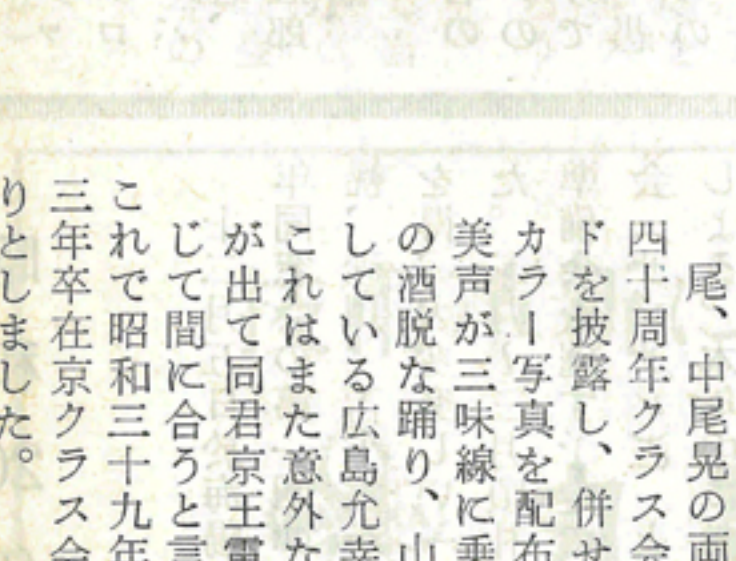 尾、中尾晃の両
四十周年クラス会
ドを披露し、併せ
カラー写真を配布
美声が三味線に乗
の酒脱な踊り、山
している広島允幸
これはまた意外な
が出て同君京王電
じて間に合うと言
これで昭和三十九年
三年卒在京クラス会
りとしました。